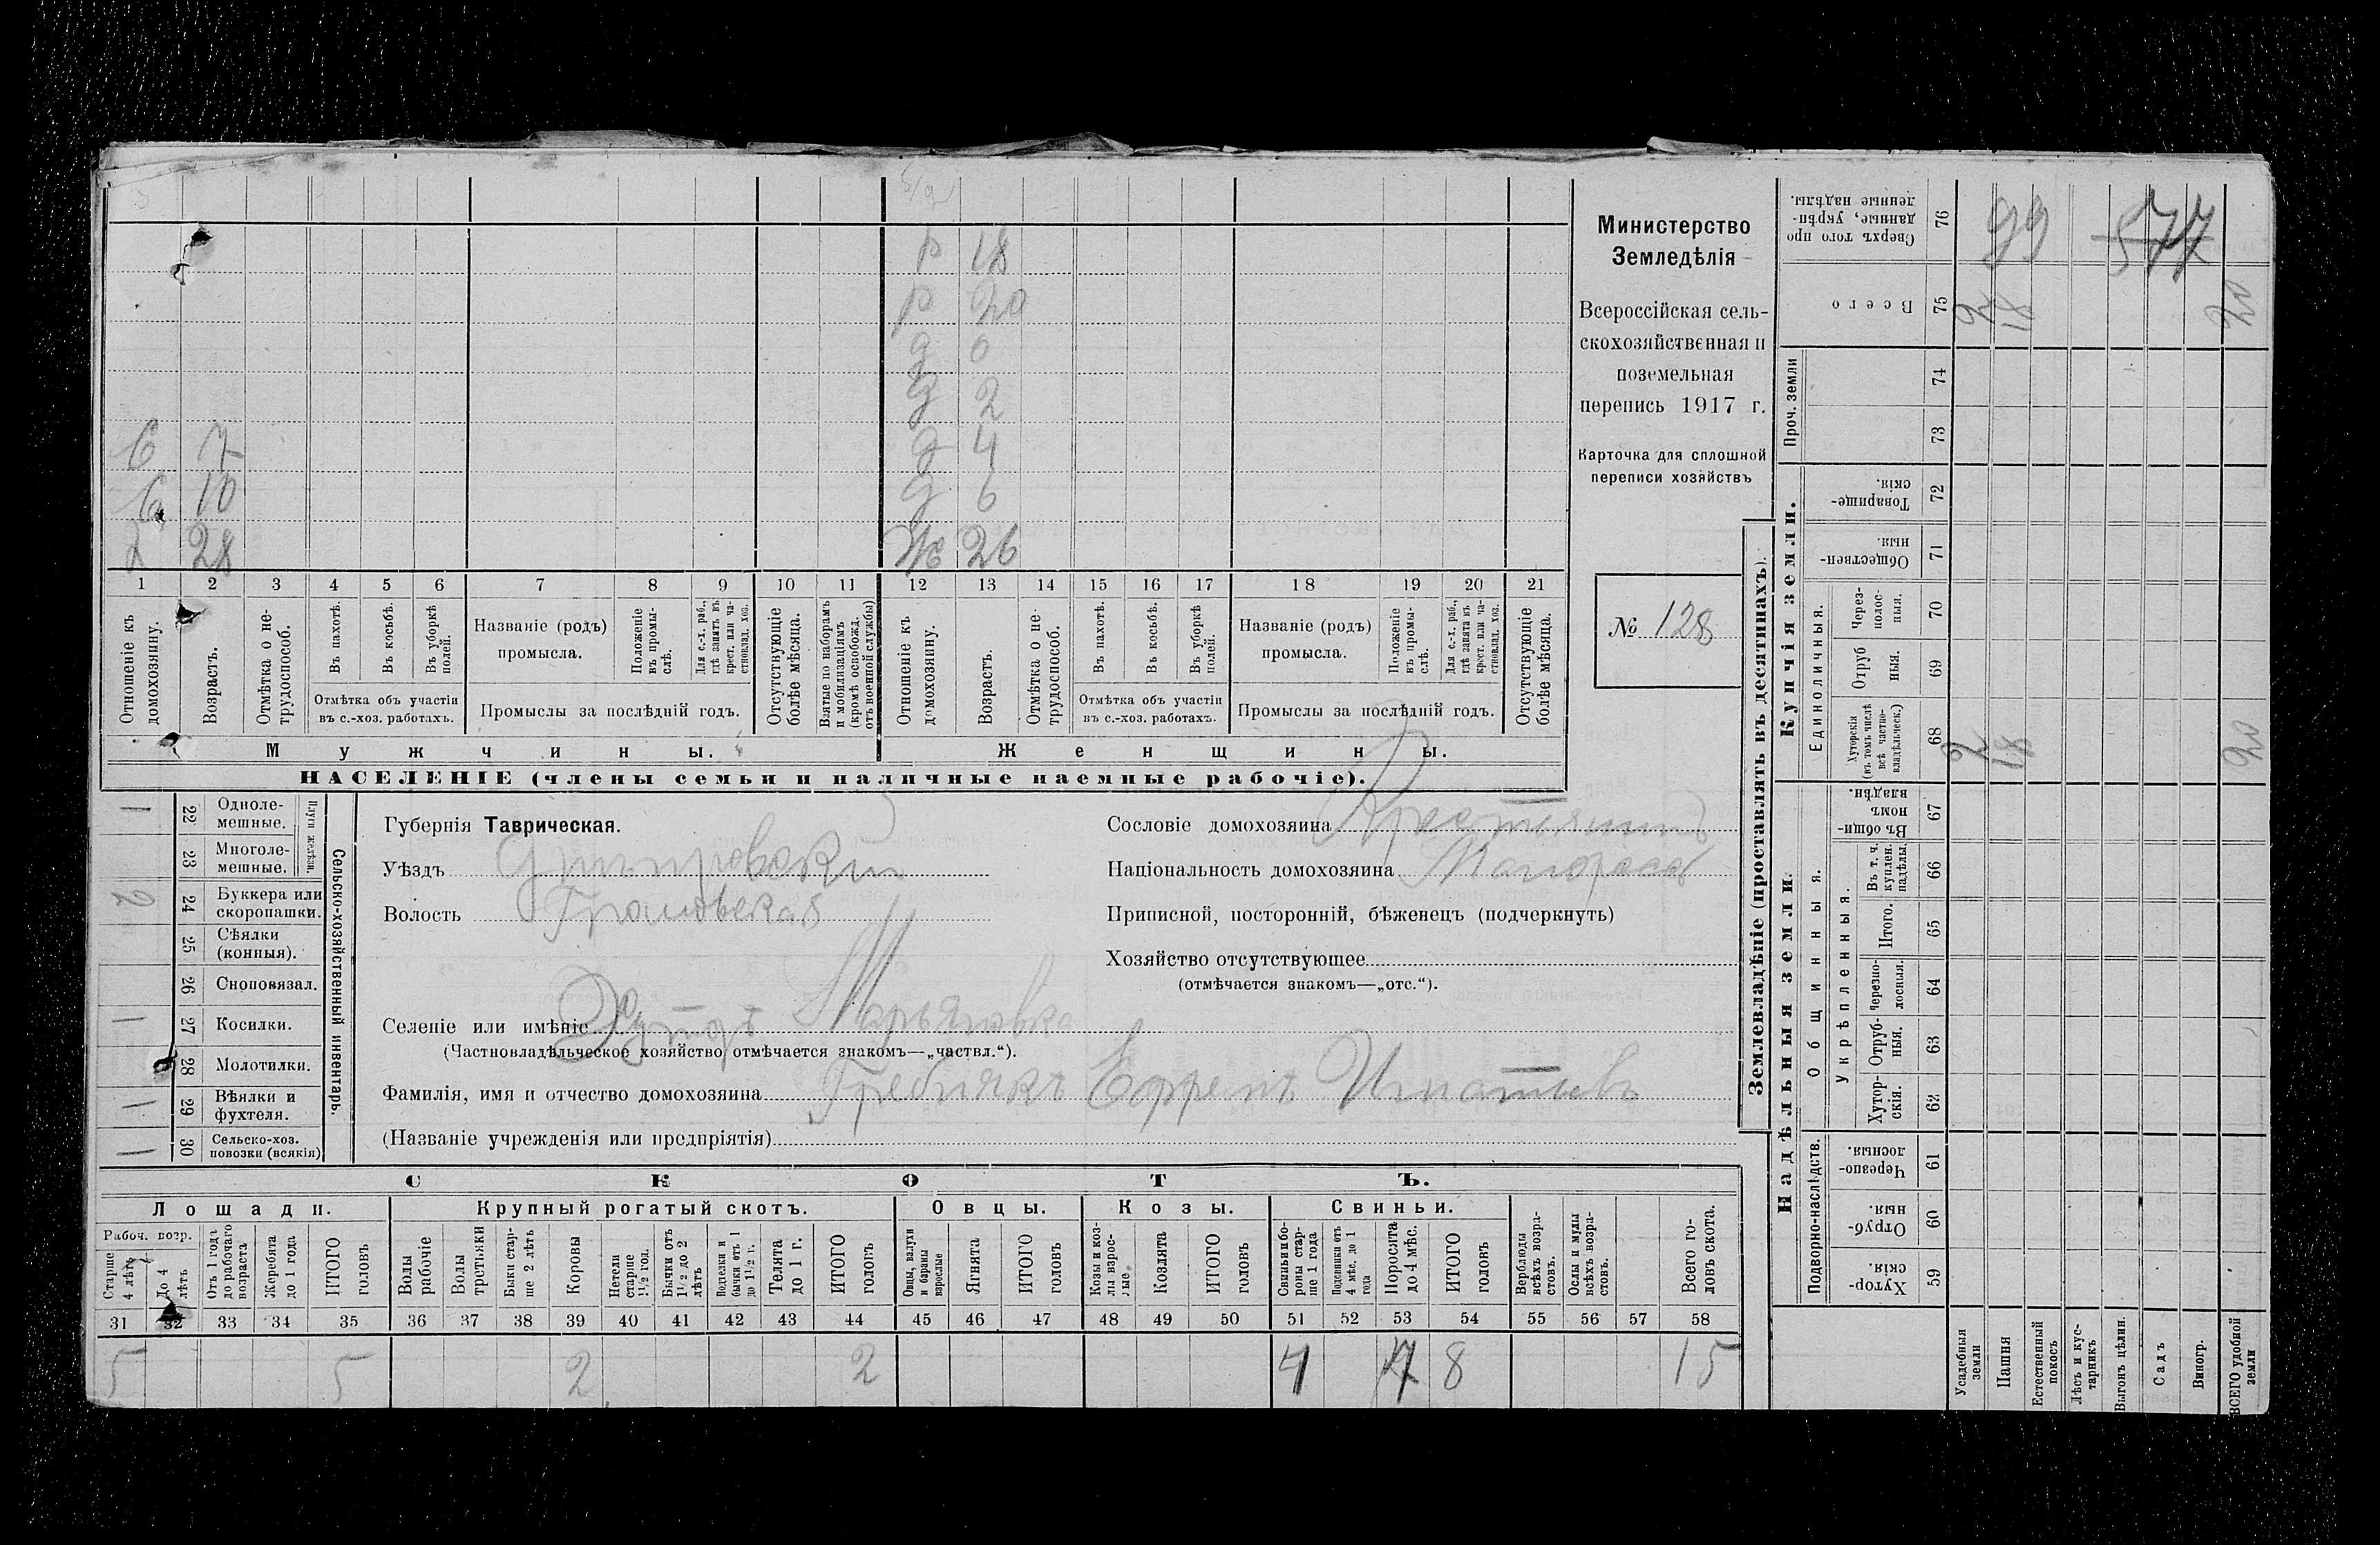 р 18
р 20
д 0
д 2
с 7 д 4
с 10 д 6
х 28 ж 26
1 2 3 4 5 6 7 8 9 10 11 12 13 14 15 16 17 18 19 20 21
Отношеніе къ домохозяину.
Возрастъ.
Отмѣтка о не-
трудоспособ.
Въ пахотѣ.
Въ косьбѣ.
Въ уборкѣ
полей.
Отмѣтка объ участіи
въ с.-хоз. работахъ.
Названіе (родъ)
промысла.
Положеніе
въ промы-
слѣ.
Для с.-х. раб.,
гдѣ занятъ въ
крест. или ча-
стновлад. хоз.
Промыслы за послѣдній годъ.
Отсутствующіе
болѣе мѣсяца.
Взятые по наборамъ
и мобилизаціямъ
(кромѣ освобожд.
отъ военной службы)
Отношеніе къ
домохозяину.
Возрастъ.
Отмѣтка о не-
трудоспособ.
Въ пахотѣ.
Въ косьбѣ.
Въ уборкѣ
полей.
Отмѣтка объ участіи
въ с.-хоз. работахъ.
Названіе (родъ)
промысла.
Положеніе
въ промы-
слѣ.
Для с.-х. раб.,
гдѣ занята въ
крест. или ча-
стновлад. хоз.
Промыслы за послѣдній годъ.
Отсутствующіе
болѣе мѣсяца.
Мужчины. Женщины.
НАСЕЛЕНІЕ (члены семьи и наличные наемные рабочіе).
Министерство
Земледѣлія
Всероссійская сель-
скохозяйственная и
поземельная
перепись 1917 г.
Карточка для сплошной
переписи хозяйствъ
№ 128
1 22 Одноле-
мешные.
23 Многоле-
мешные.
Плуги желѣзн.
2 24 Буккера или
скоропашки.
25 Сѣялки
(конныя).
26 Сноповязал.
1 27 Косилки.
28 Молотилки.
1 29 Вѣялки и
фухтеля.
1 30 Сельско-хоз.
повозки (всякія)
Сельско-хозяйственный инвентарь.
Губернія Таврическая.
Уѣздъ Днѣпровскій
Волость
Селеніе или имѣніе Хуторъ Марьяновка
(Частновладѣльческое хозяйство отмѣчается знакомъ—„частвл.“).
Фамилія, имя и отчество домохозяина Гребнякъ Ефремъ Игнатьевъ
(Названіе учрежденія или предпріятія)
Сословіе домохозяина Крестьянинъ
Національность домохозяина Малороссъ
Приписной, посторонній, бѣженецъ (подчеркнуть)
Хозяйство отсутствующее
(отмѣчается знакомъ—„отс.“).
СКОТЪ.
Лошади. Крупный рогатый скотъ. Овцы. Козы. Свиньи.
Рабоч. возр.
Старше
4 лѣтъ
До 4
лѣтъ
Отъ 1 года
до рабочаго
возраста
Жеребята
до 1 года
ИТОГО
головъ
Волы
рабочіе
Волы
третьяки
Быки стар-
ше 2 лѣтъ
Коровы
Нетели
старше
1½ год.
Бычки отъ
1½ до 2
лѣтъ
Подтелки и
бычки отъ 1
до 1½ г.
Телята
до 1 г.
ИТОГО
головъ
Овцы, валухи
и бараны
взрослые
Ягнята
ИТОГО
головъ
Козы и коз-
лы взрос-
лые.
Козлята
ИТОГО
головъ
Свиньи и бо-
ровы стар-
ше 1 года
Подсвинки отъ
4 мѣс. до 1
года
Поросята
до 4 мѣс.
ИТОГО
головъ
Верблюды
всѣхъ возра-
стовъ.
Ослы и мулы
всѣхъ возра-
стовъ.
Всего го-
ловъ скота.
31 32 33 34 35 36 37 38 39 40 41 42 43 44 45 46 47 48 49 50 51 52 53 54 55 56 57 58
5 5 2 2 8 15
Землевладѣніе (проставлять въ десятинахъ).
Надѣльныя земли.
Купчія земли.
Проч. земли
Подворно-наслѣдств.
Общинныя.
Укрѣпленныя.
Единоличныя.
Сверхъ того про
данные, укрѣп-
ленные надѣлы. 76 99 577
Всего 75 2 18 20
74
73
Товарище-
скія. 72
Обществен-
ныя. 71
Через-
полос-
ныя. 70
Отруб
ныя. 69
Хуторскія
(въ томъ числѣ
всѣ частно-
владѣльческ.) 68 2 18 20
Въ общин-
номъ
владѣн. 67
Въ т. ч.
куплен.
надѣлы. 66
Итого. 65
Черезпо-
лосныя. 64
Отруб-
ныя. 63
Хутор-
скія. 62
Черезпо-
лосныя. 61
Отруб-
ныя. 60
Хутор-
скія. 59
Усадебныя
земли
Пашня
Естественный
покосъ
Лѣсъ и кус-
тарникъ
Выгонъ цѣлин.
Садъ
Виногр.
ВСЕГО удобной
земли